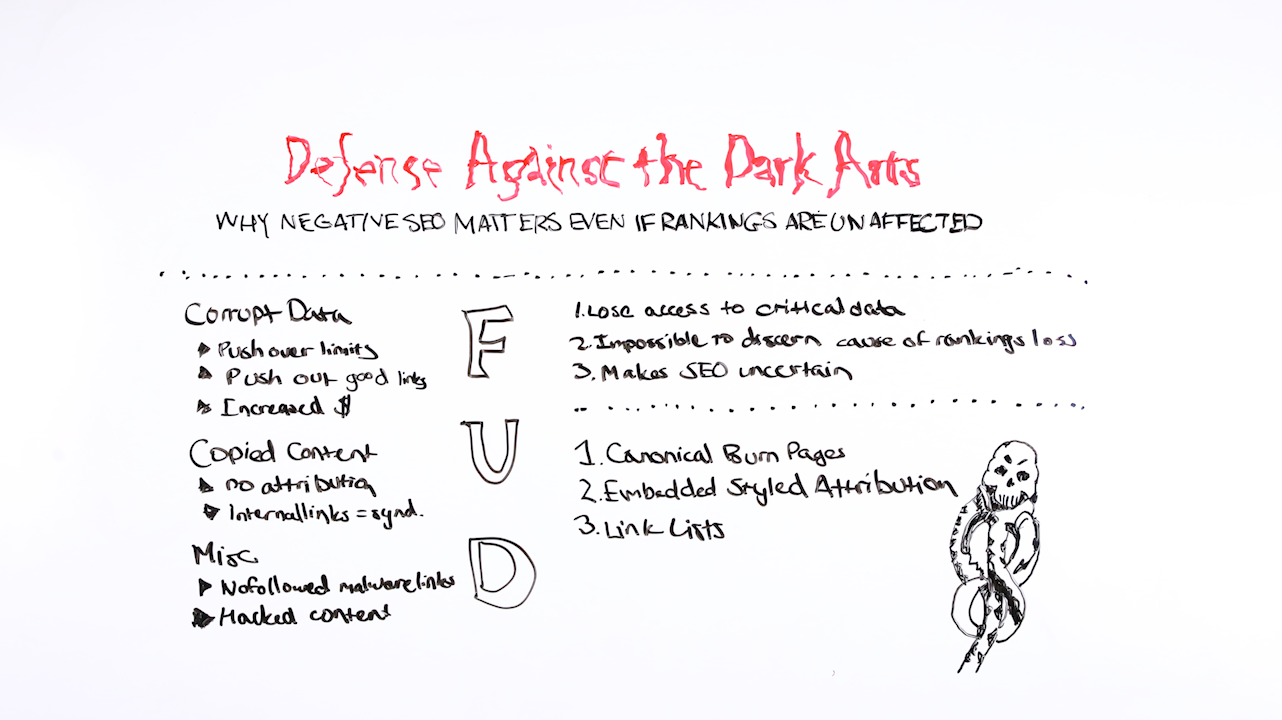 Defense Against the Dark Arts
WHY NEGATIVE SEO MATTERS EVEN IF RANKINGS ARE UNAFFECTED
Corrupt Data
Push over limits
Push out good links
Increased $
Copied Content
no attribution
Internal links = synd.
Misc
Nofollowed malware links
Hacked content
F
U
D
1. Lose access to critical data
2. Impossible to discern cause of rankings loss
3. Makes SEO uncertain
1. Canonical Burn Pages
2. Embedded Styled Attribution
3. Link Lists